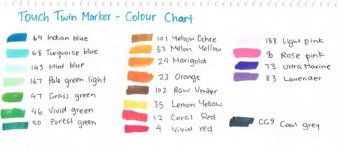 Touch Twin Marker - Colour Chart
64 Indian blue
68 Turquoise blue
143 Mint blue
167 Pale green light
47 Grass green
46 Vivid green
50 Forest green
101 Yellow Ochre
33 Melon Yellow
24 Marigold
23 Orange
102 Raw Umber
35 Lemon Yellow
12 Coral Red
4 Vivid red
138 Light pink
8 Rose pink
73 Ultra Marine
83 Lavender
CG9 Cool grey